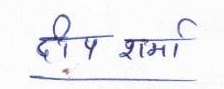 दीप शर्मा